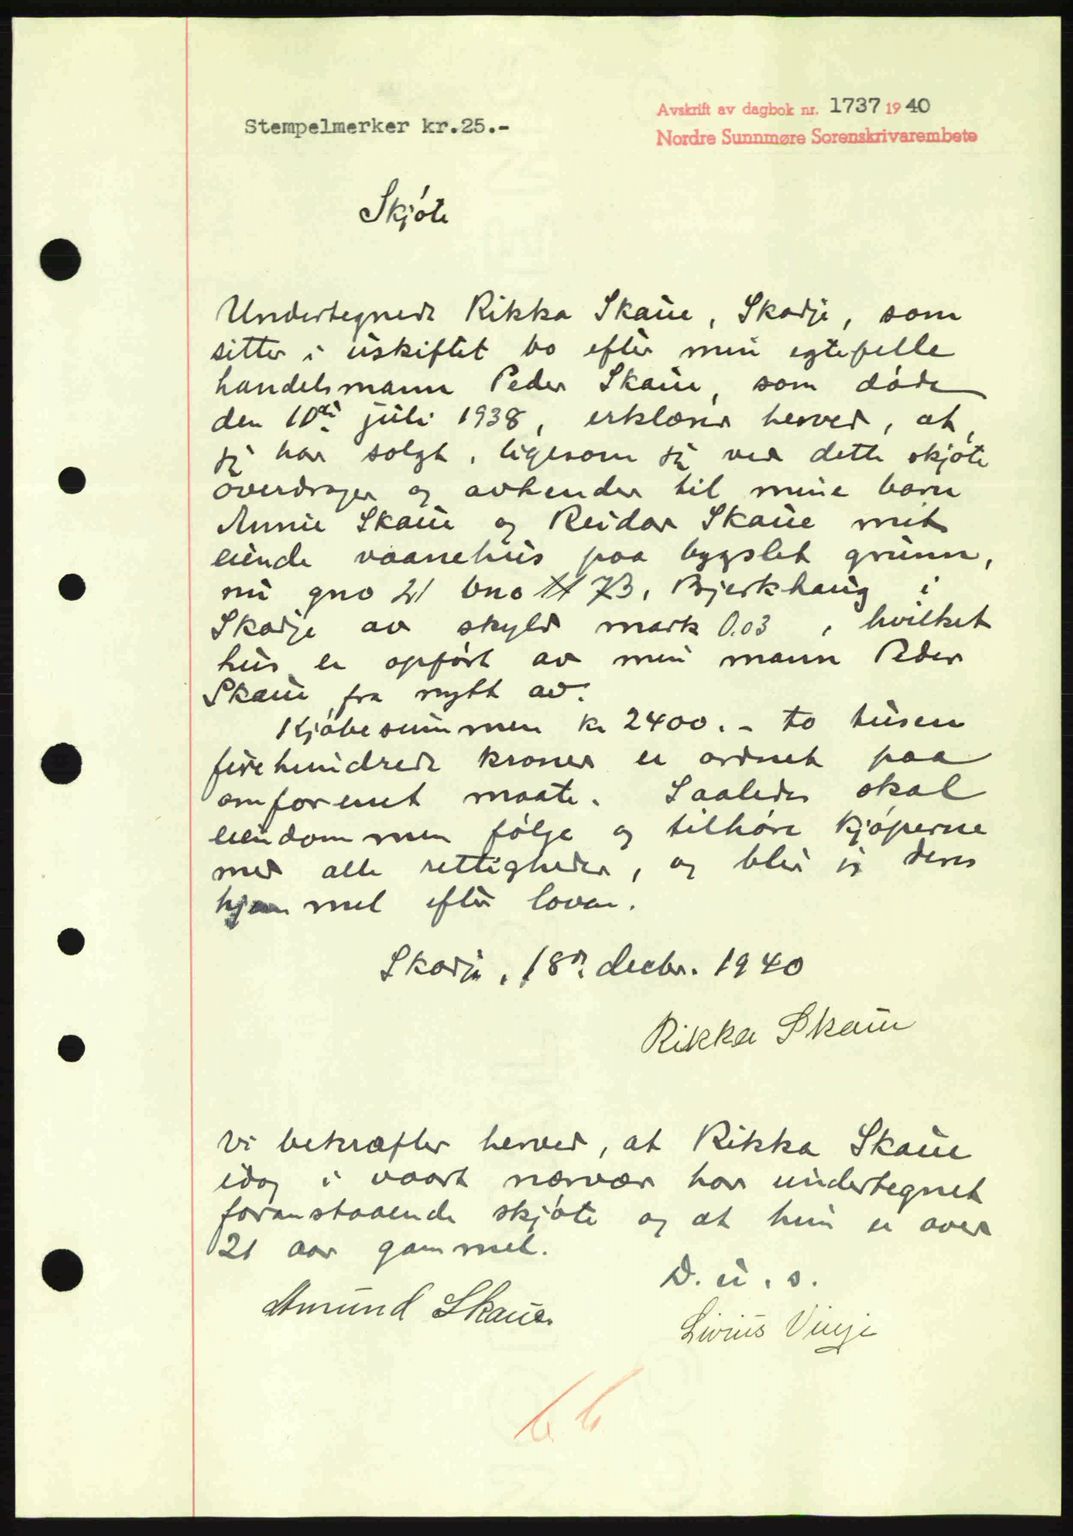 Stempelmerker kr.25.-
Avskrift av dagbok nr. 1737 1940
Nordre Sunnmøre Sorenskrivarembete
Skjøte
Undertegnede Rikka Skaue, Skodje, som
sitter i uskiftet bo efter min egtefelle
handelsmann Peder Skaue, som døde
den 10de juli 1938, erklærer herved, at
jeg har solgt, ligesom jeg ved dette skjøte
overdrager og avhender til mine barn
Annie Skaue og Reidar Skaue mit
eiende vaanehus paa bygslet grunn,
nu gno 21 bno 73, Bjerkhaug i
Skodje av skyld mark 0.03, hvilket
hus er opført av min mann Peder
Skaue fra nytt av.
Kjøbesummen kr 2400.- to tusen
firehundrede kroner er ordnet paa
omforenet maate. Saaledes skal
eiendommen følge og tilhøre kjøperne
med alle rettigheder, og blir jeg deres
hjemmel efter loven.
Skodje, 18de decbr. 1940
Rikka Skaue
Vi bekræfter herved, at Rikka Skaue
idag i vaart nærvær har undertegnet
foranstaaende skjøte og at hun er over
21 aar gammel.
D. u. s.
Amund Skaue.
Sivius Vinje